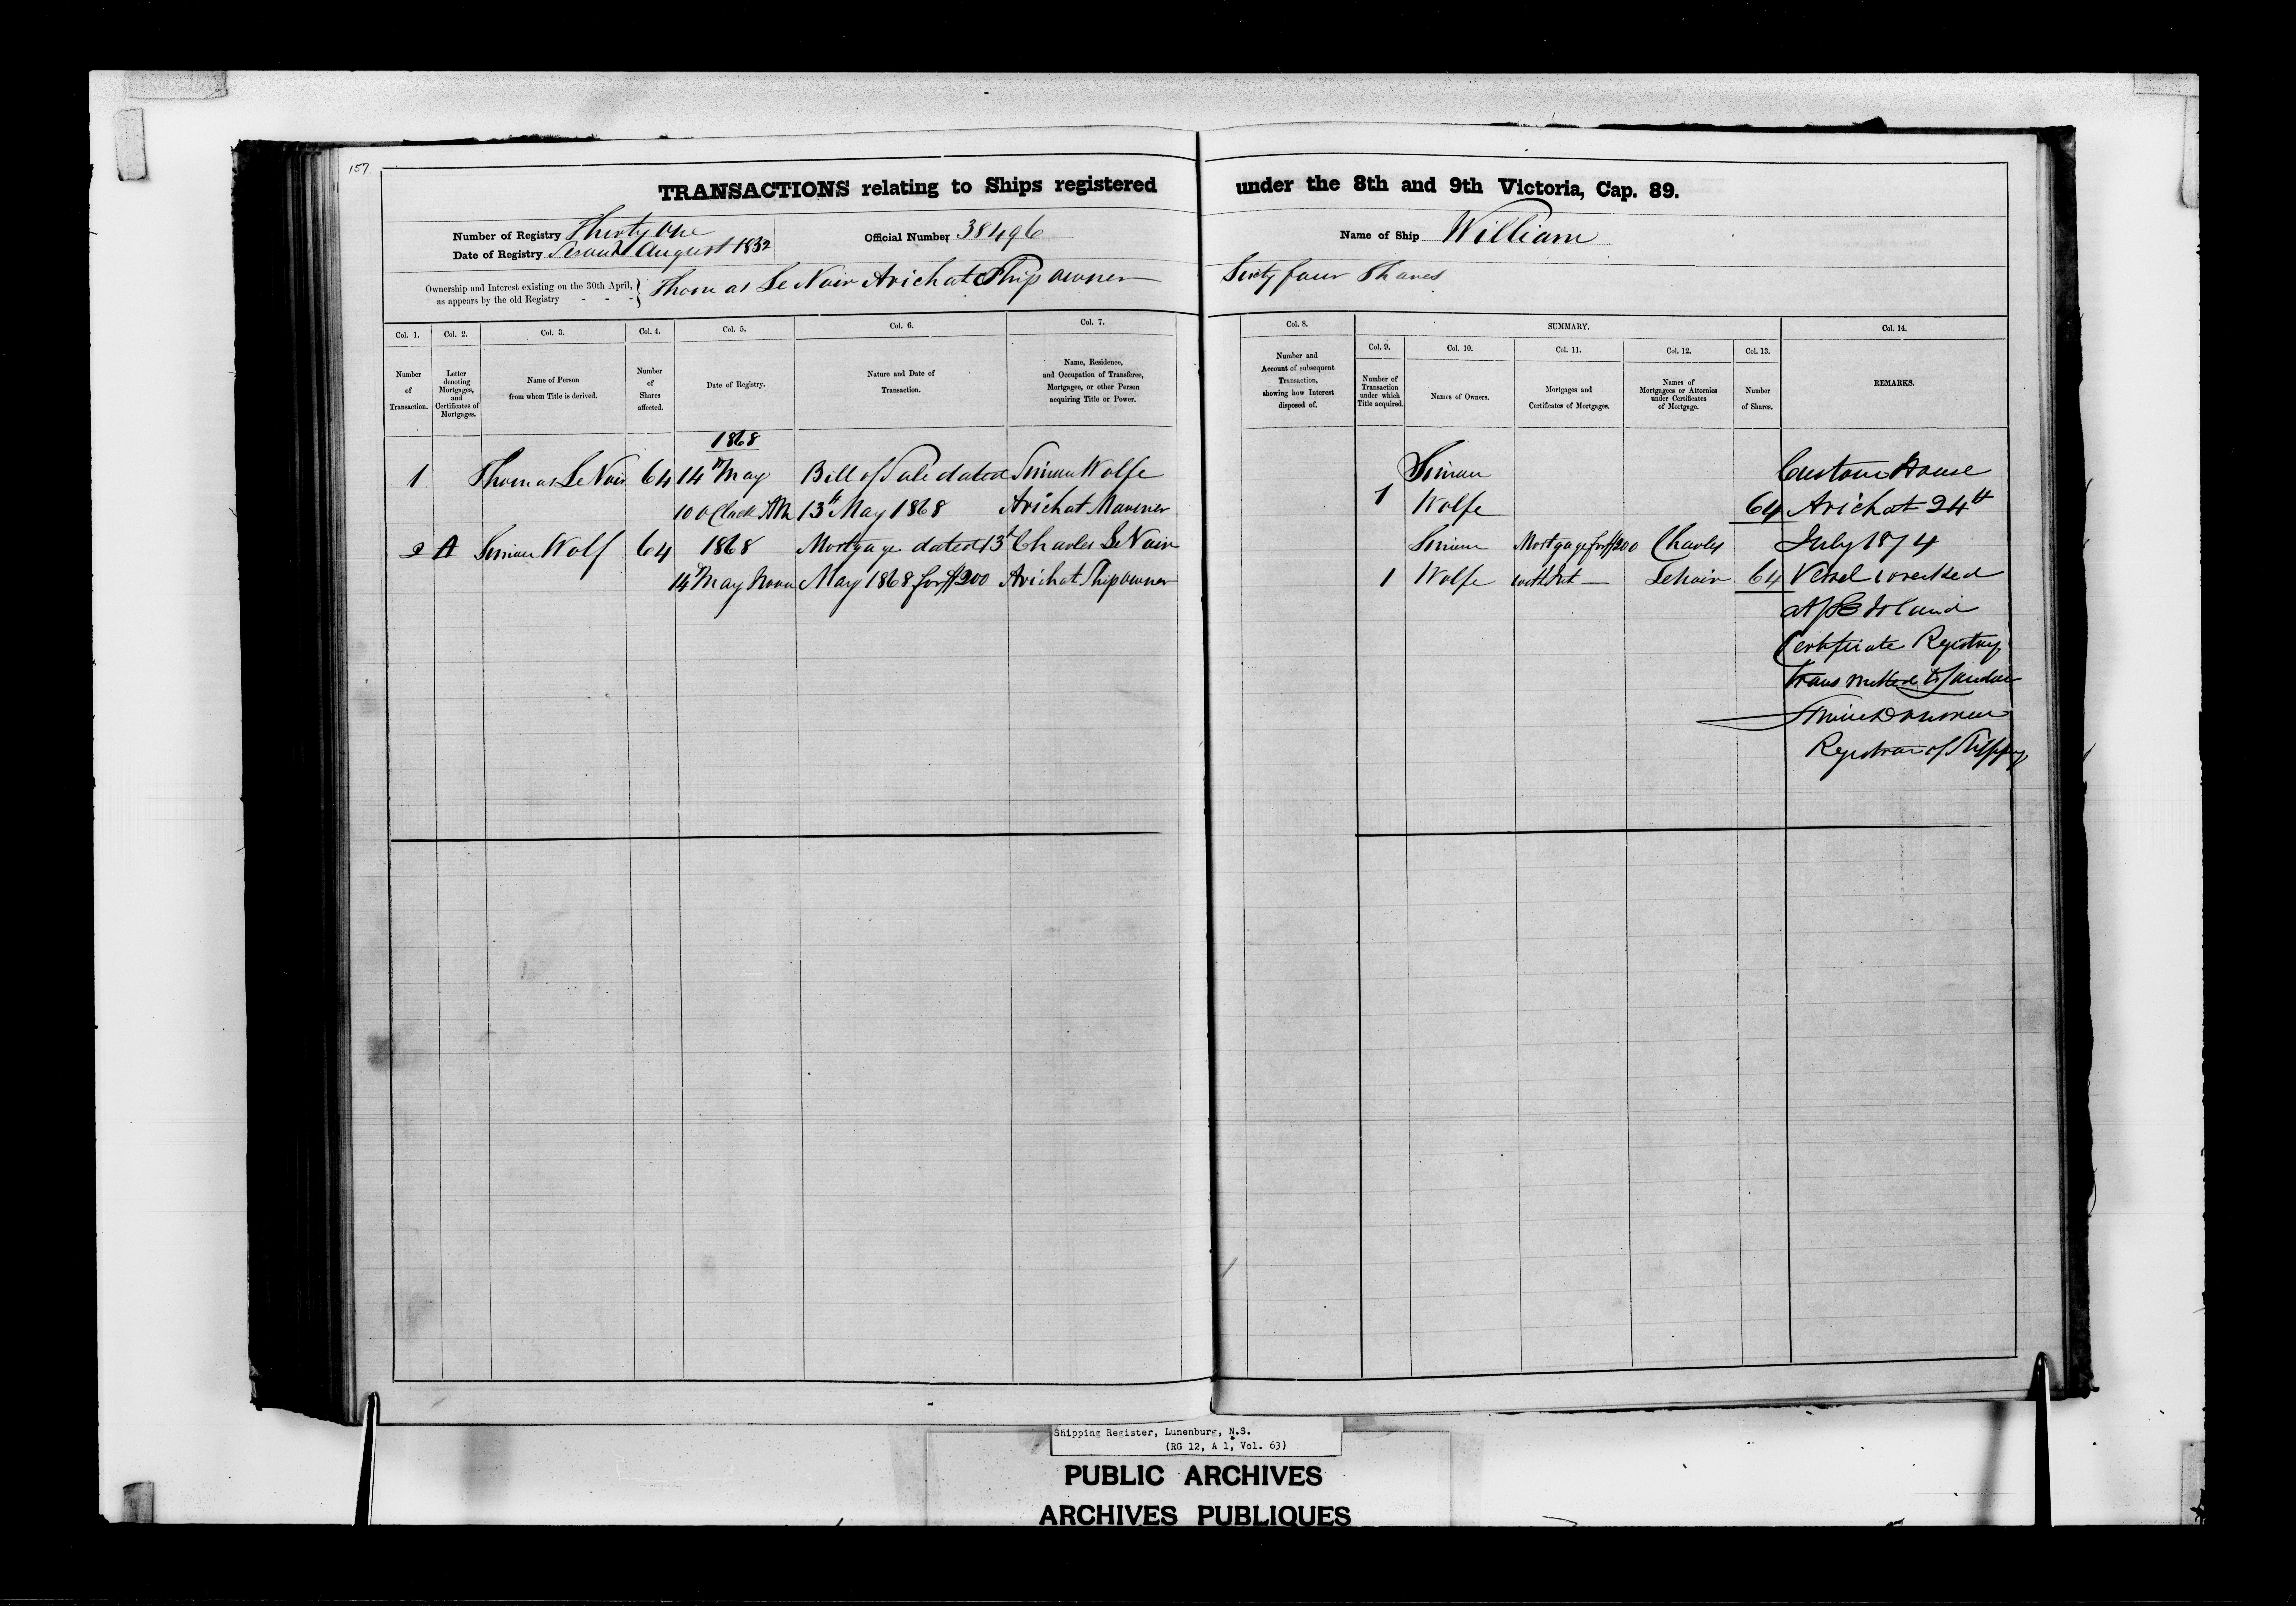 157.
TRANSACTIONS relating to Ships registered under the 8th and 9th Victoria, Cap. 89.
Number of Registry Thirty One
Date of Registry Second August 1832
Official Number 38496
Name of Ship William
Ownership and Interest existing on the 30th April,
as appears by the old Registry - - -
Thomas Le Noir Arichat Ship owner Sixty four Shares
Col. 1. Col. 2. Col. 3. Col. 4. Col. 5. Col. 6. Col. 7. Col. 8. SUMMARY. Col. 14.
Col. 9. Col. 10. Col. 11. Col. 12. Col. 13.
Number
of
Transaction.
Letter
denoting
Mortgages,
and
Certificates of
Mortgages.
Name of Person
from whom Title is derived.
Number
of
Shares
affected.
Date of Registry.
Nature and Date of
Transaction.
Name, Residence,
and Occupation of Transferee,
Mortgagee, or other Person
acquiring Title or Power.
Number and
Account of subsequent
Transaction,
showing how Interest
disposed of.
Number of
Transaction
under which
Title acquired.
Names of Owners.
Mortgages and
Certificates of Mortgages.
Names of
Mortgagees or Attornies
under Certificates
of Mortgage.
Number
of Shares.
REMARKS.
1868
1 Thomas Le Noir 64 14th May Bill of Sale dated Simon Wolfe
10 O Clock AM 13th May 1868 Arichat Mariner
2 A Simon Wolf 64 1868 Mortgage dated 13th Charles Le Noir
14th May Noon May 1868 for $200 Arichat Ship owner
Simon
1 Wolfe 64
Simon Mortgage for $200 Charles
1 Wolfe with Int — Lenoir 64
Custom House
Arichat 24th
July 1874
Vessel wrecked
at P E Island
Certificate Registry
transmitted to London
Registrar of Shipping
Shipping Register, Lunenburg, N.S.
(RG 12, A 1, Vol. 63)
PUBLIC ARCHIVES
ARCHIVES PUBLIQUES